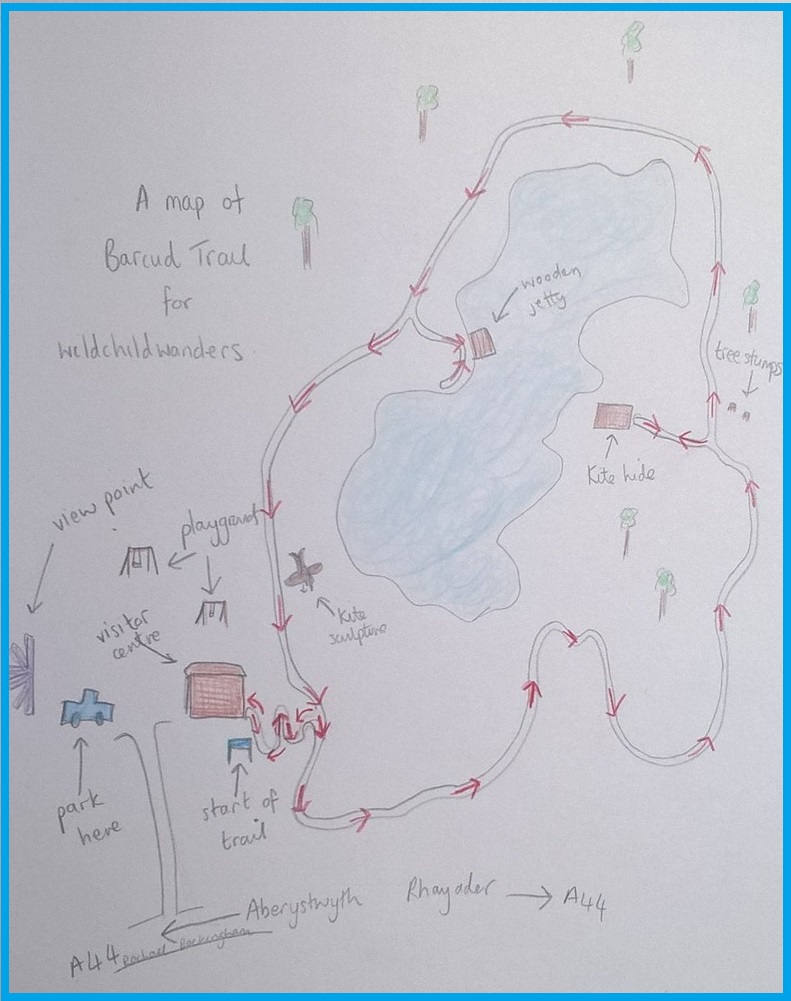 A map of
Barcud Trail
for
wildchildwanders
wooden
jetty
tree stumps
Kite hide
view point
playground
visitor
centre
Kite
sculpture
park
here
start of
trail
Aberystwyth
Rhayader
A44
A44
Rachael Rockingham